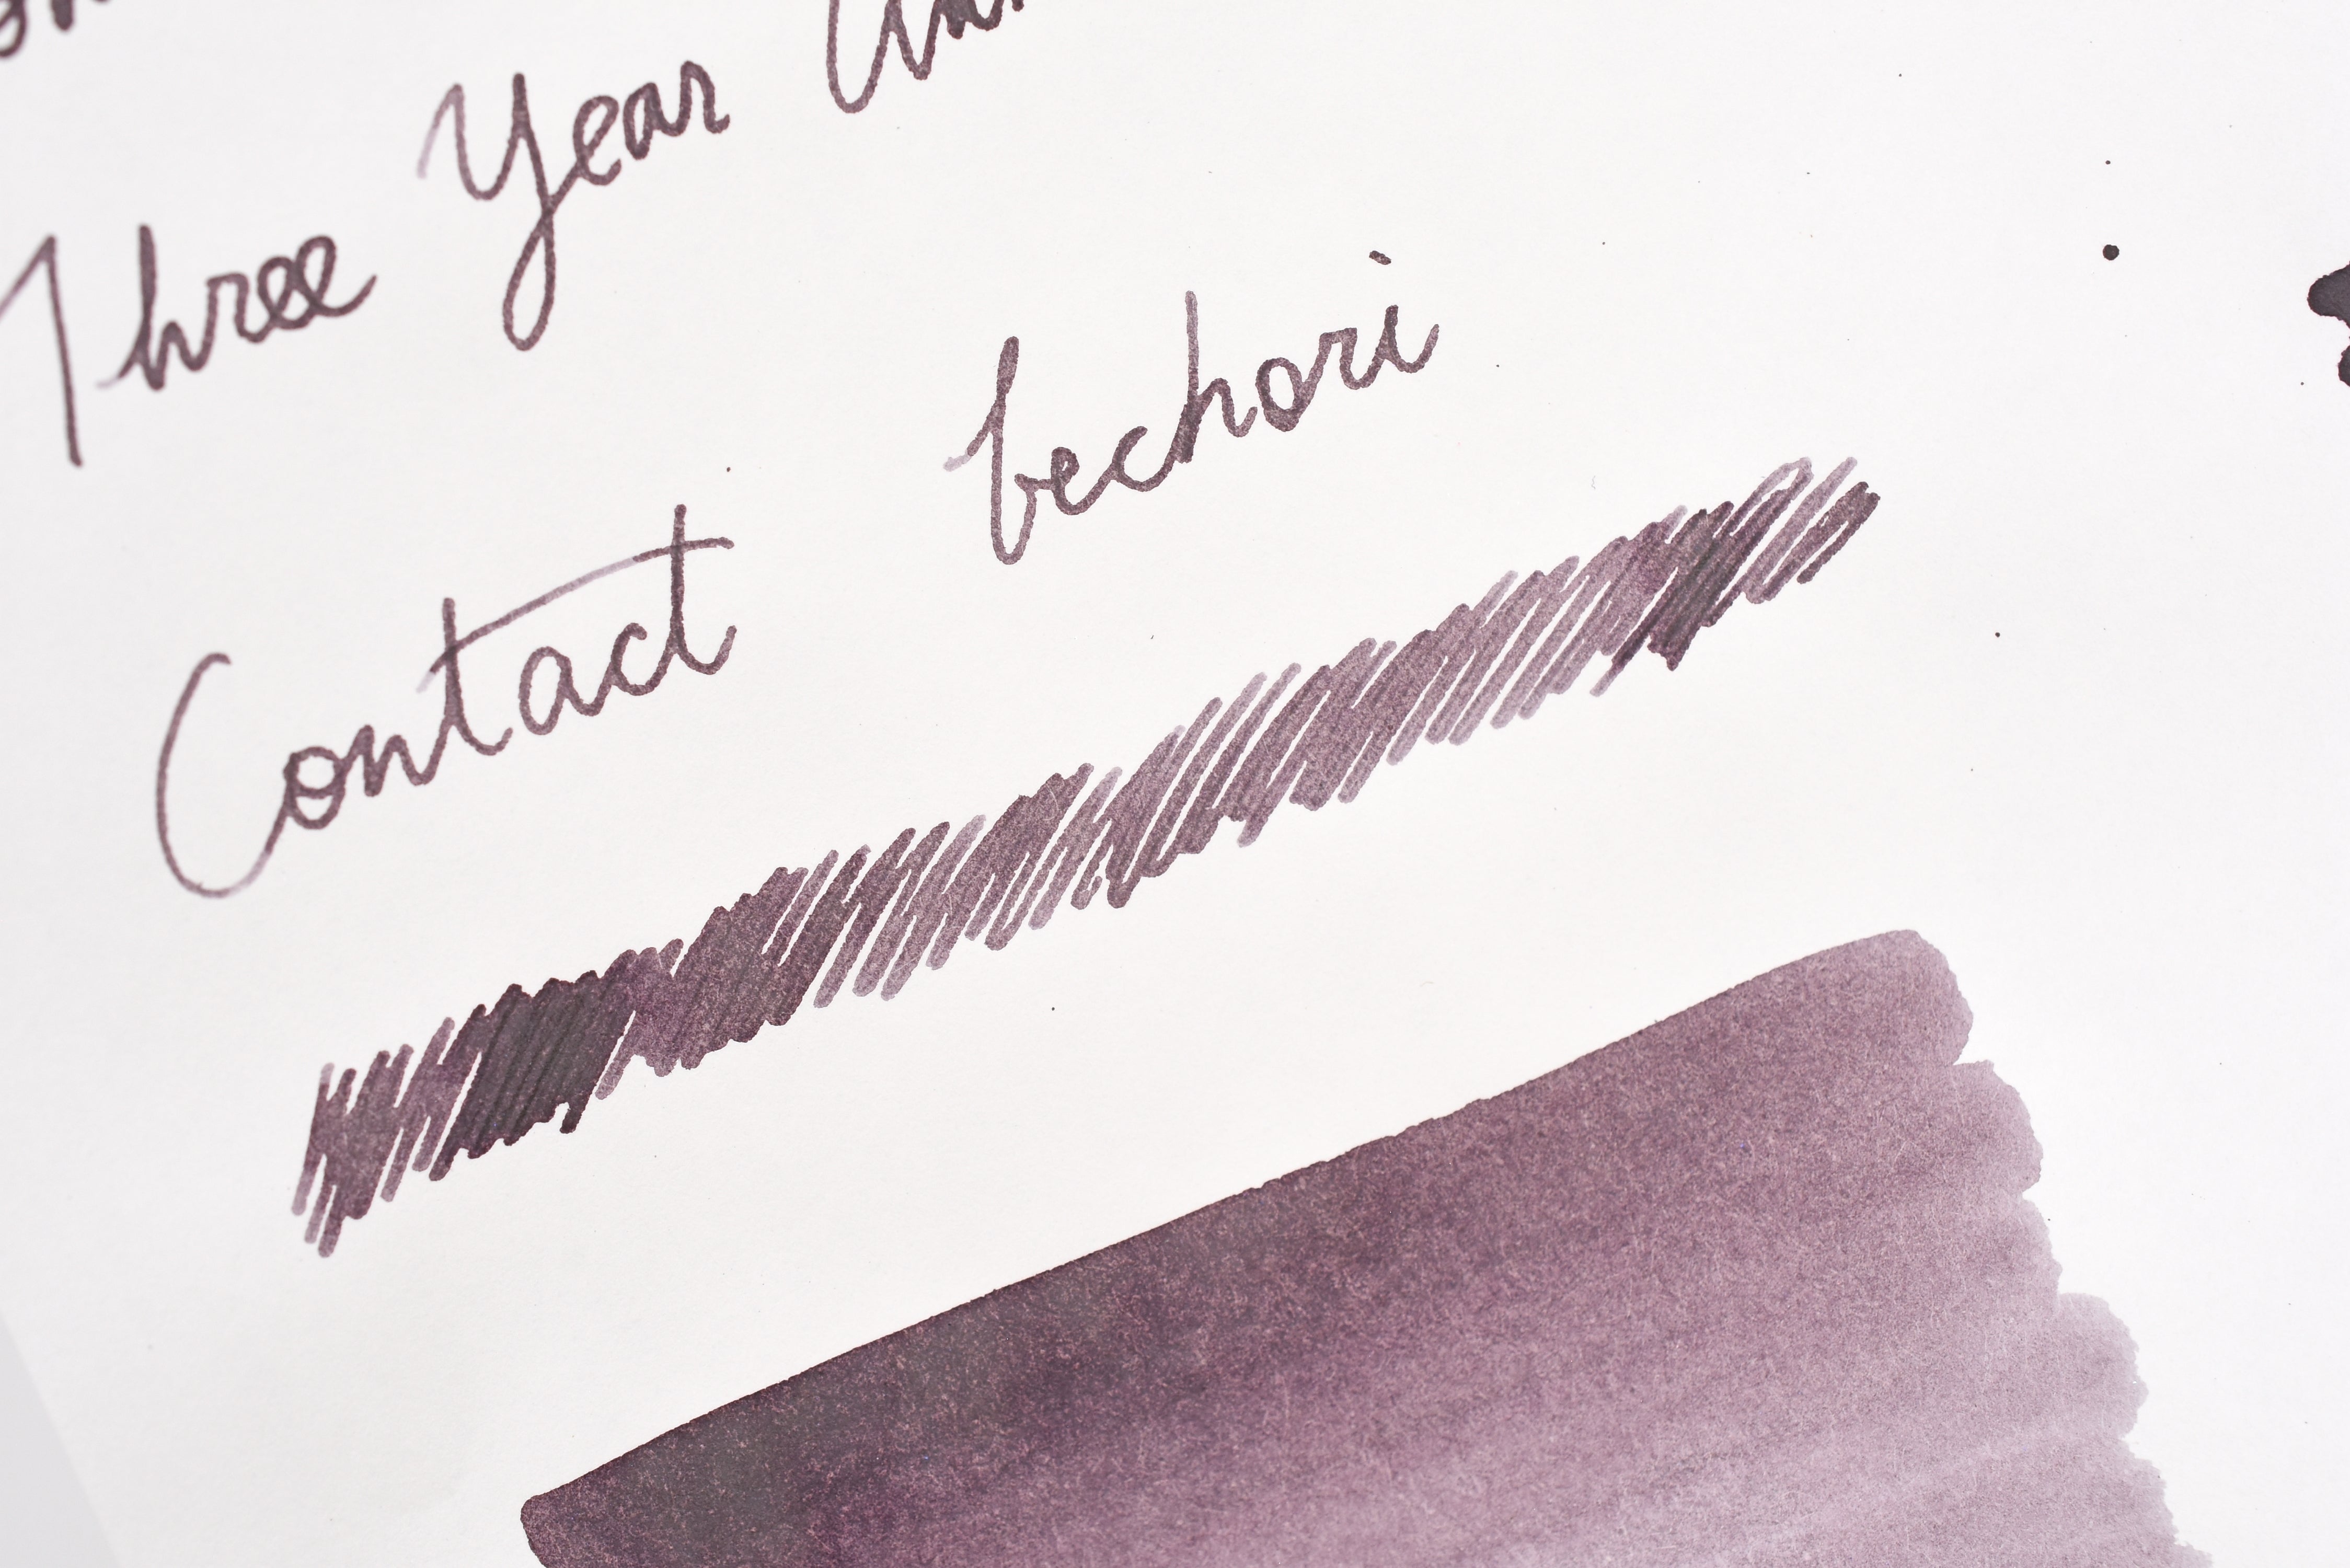 Three Year
Contact bechori